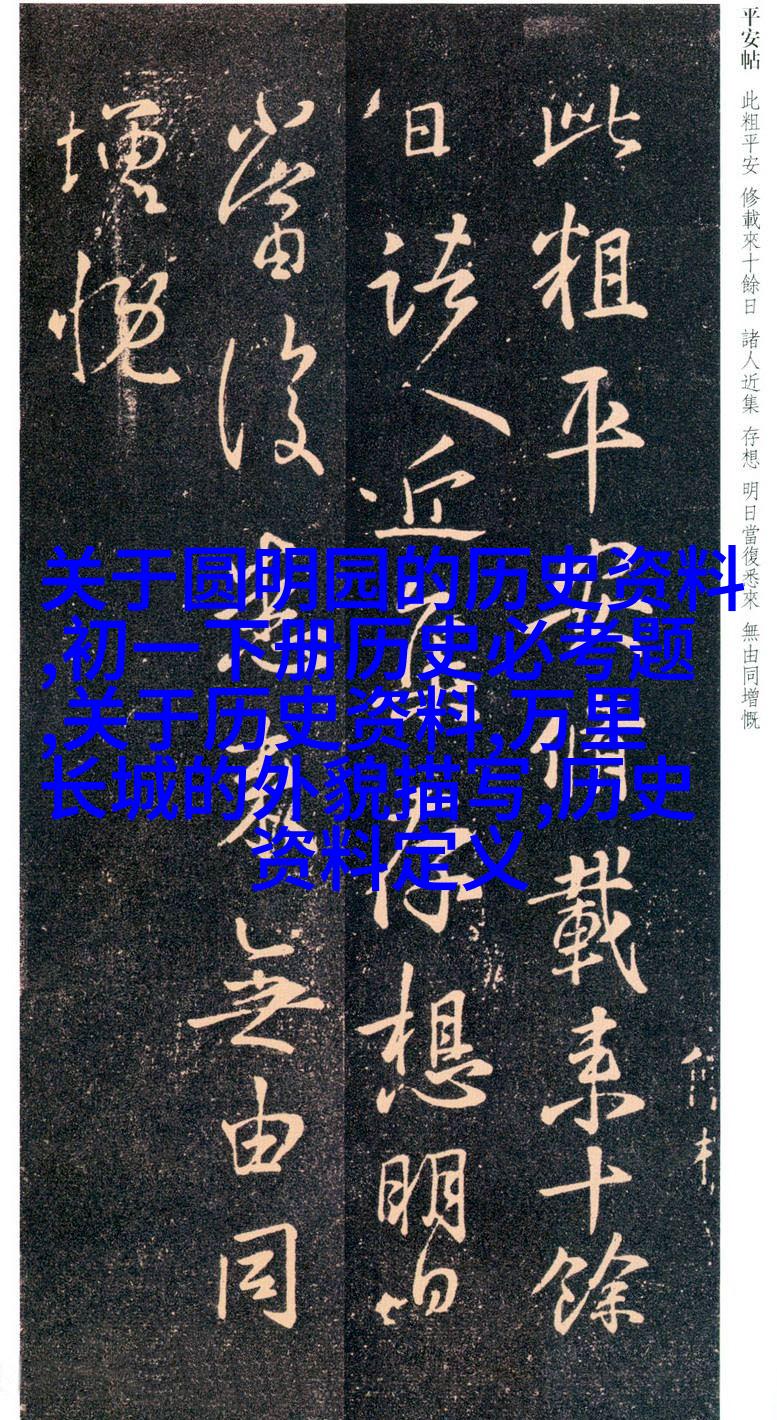 平安帖 此粗平安 修載來十餘日 諸人近集 存想 明日當復悉來 無由同增慨
此粗平安修載来十餘
日諸人近集存想明日
當復悉来無由同
增慨
关于圆明园的历史资料
,初一下册历史必考题
,关于历史资料,万里
长城的外貌描写,历史
资料定义